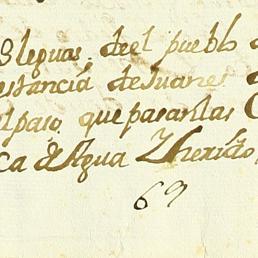 8 leguas, de el pueblo
estancia de Juanes
el paso que pasan las
ca de Agua
69